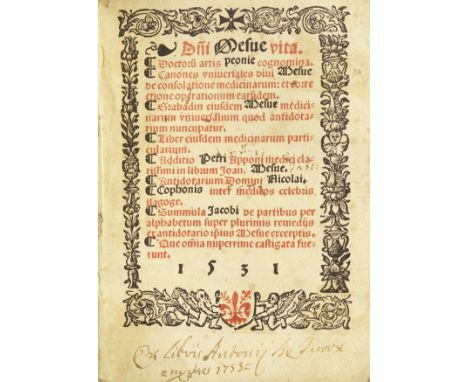 Dñi Mesue vita.
Doctorũ artis peonie cognomina.
Canones vniuersales diui Mesue
de consolatione medicinarum: et corre
ctione operationum earundem.
Grabadin eiusdem Mesue medici-
narum vniuersalium quod antidota-
rium nuncupatur.
Liber eiusdem medicinarum parti-
cularium.
Additio Petri Apponi medici cla-
rissimi in librum Joan. Mesue.
Antidotarium Domini Nicolai.
Cophonis inter medicos celebris
isagoge.
Summula Jacobi de partibus per
alphabetum super plurimis remedijs
ex antidotario ip̃ius Mesue excerptis.
Que om̃ia nuperrime castigata fue-
runt.
1531
Ex libris Antonij de
1755